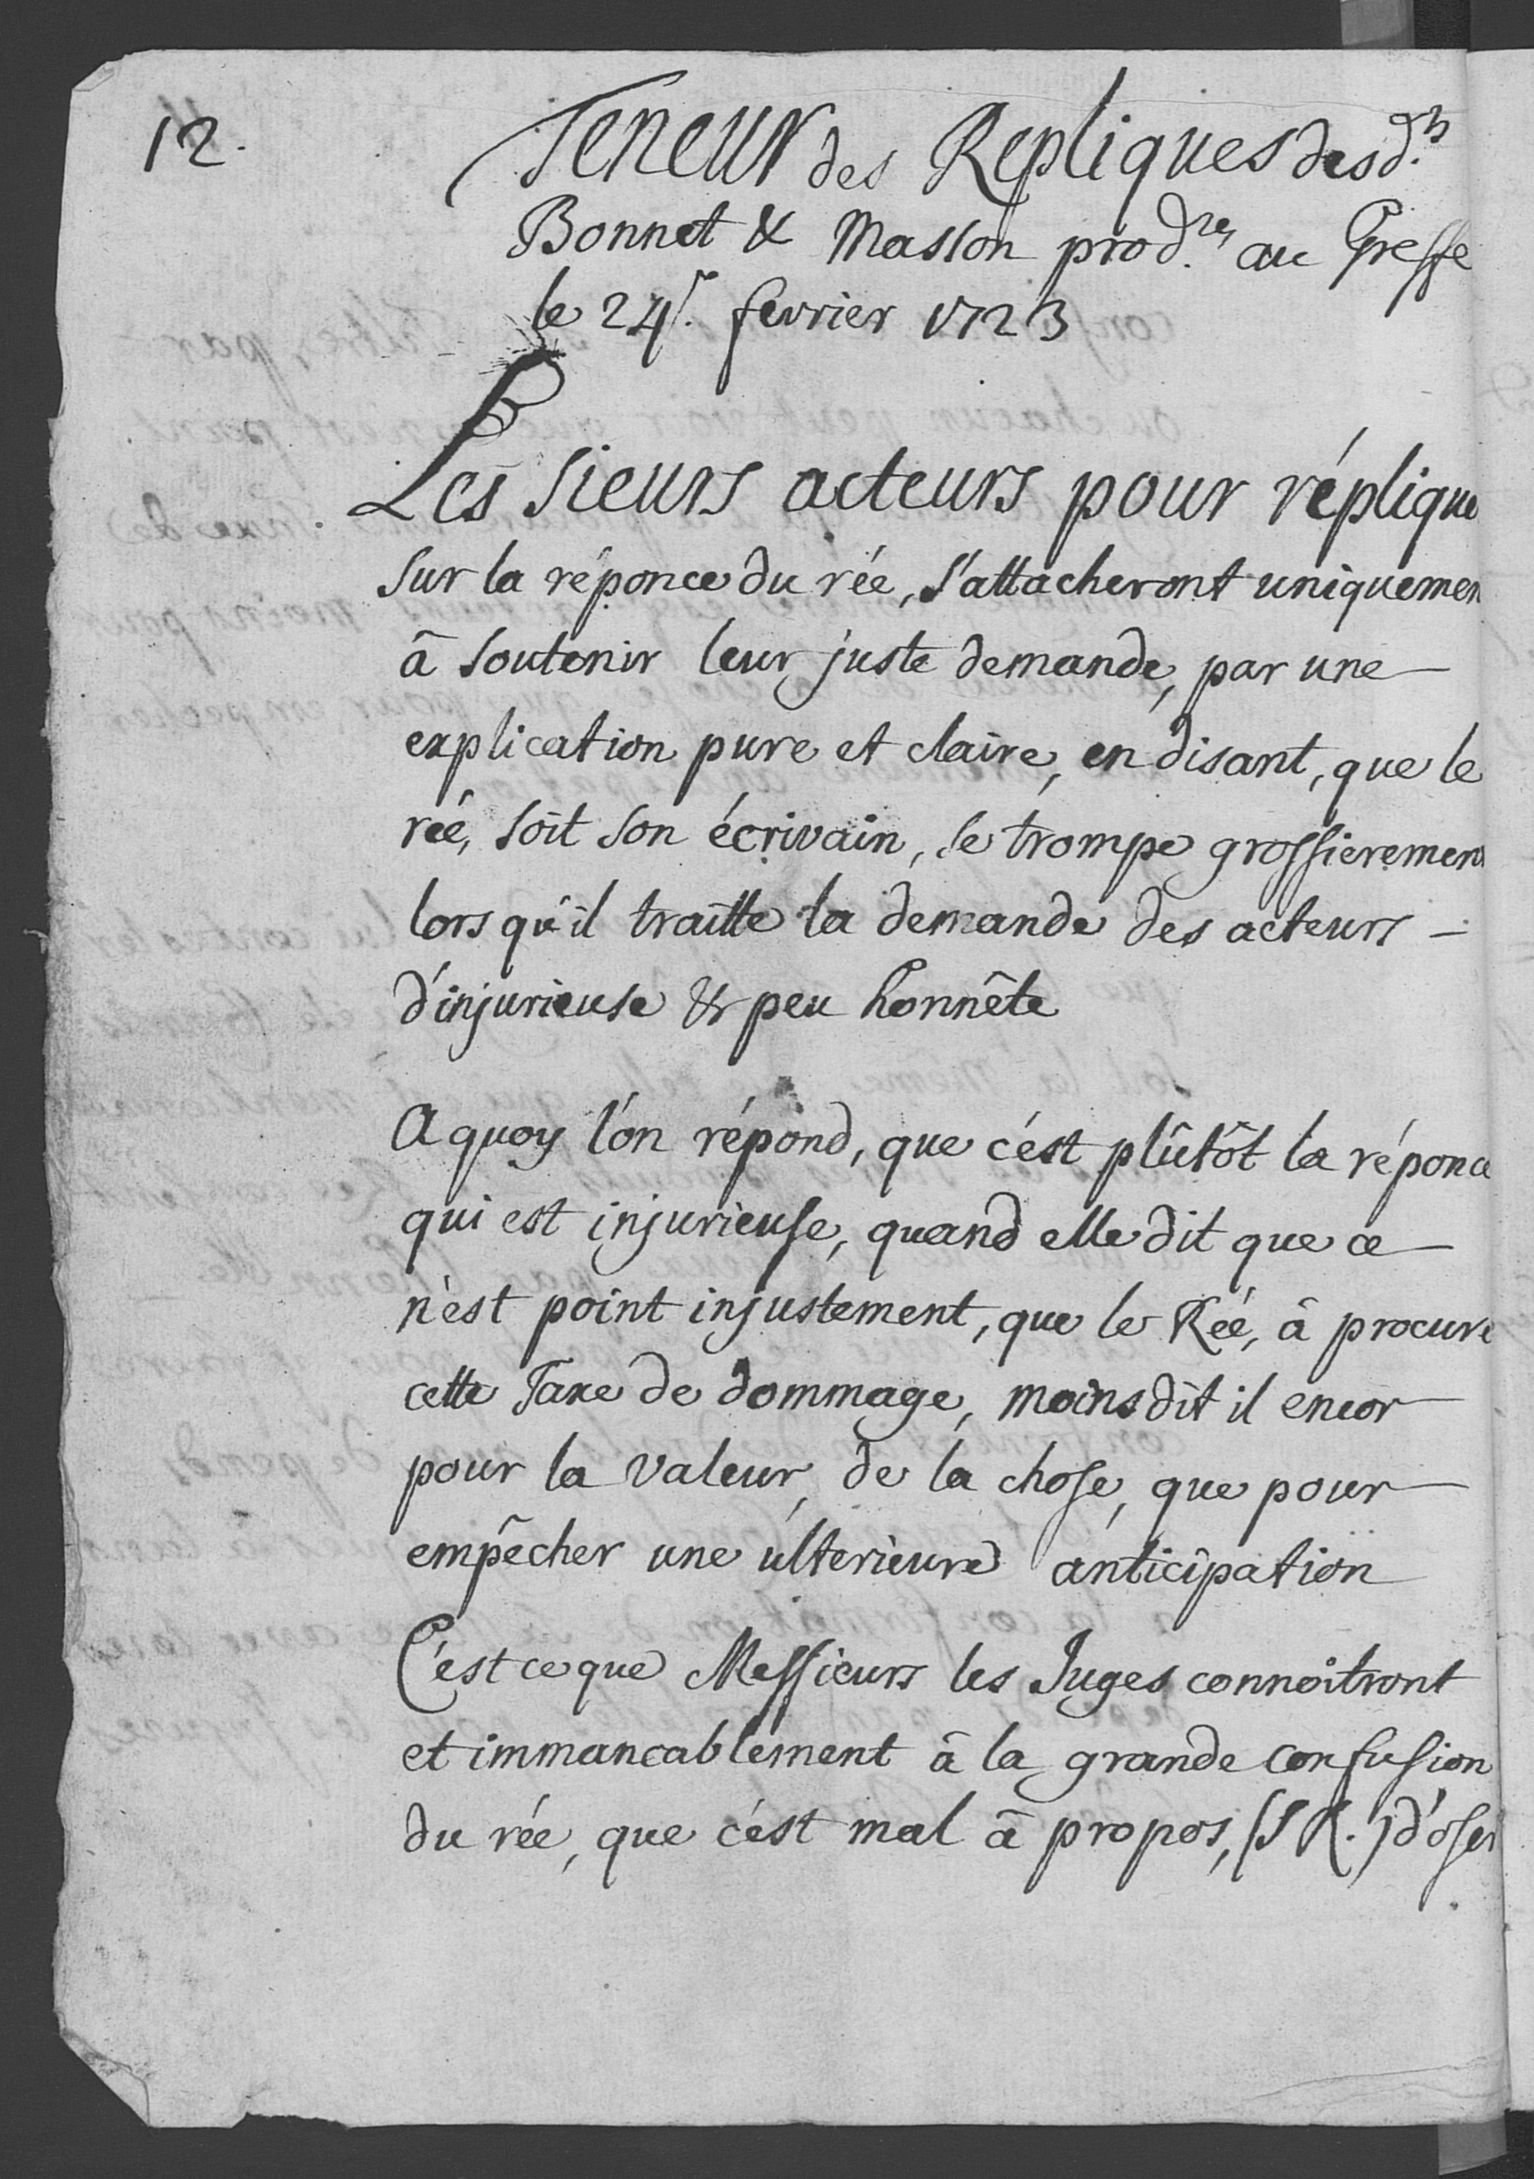 12.
Teneur des Repliques desd.ts
Bonnet & Masson prod.res au Greffe
le 24.e fevrier 1723
Les sieurs acteurs pour réplique
sur la réponce du rée, s'attacheront uniquemen
â soutenir leur juste demande, par une
explication pure et claire, en disant, que le
rée, soit son écrivain, se trompe grossierement
lors qu'il traitte la demande des acteurs
d'injurieuse & peu honnête
A quoy l'on répond, que c'ést plûtôt la réponce
qui est injurieuse, quand elle dit que ce
n'est point injustement, que le Rée, â procuré
cette Taxe de dommage, moins dit il encor
pour la valeur, de la chose, que pour
empêcher une ulterieure anticipation
C'est ce que Messieurs les Juges connoitront
et immancablement â la grande confusion
du rée, que c'ést mal â propos, (S R.) d'oser